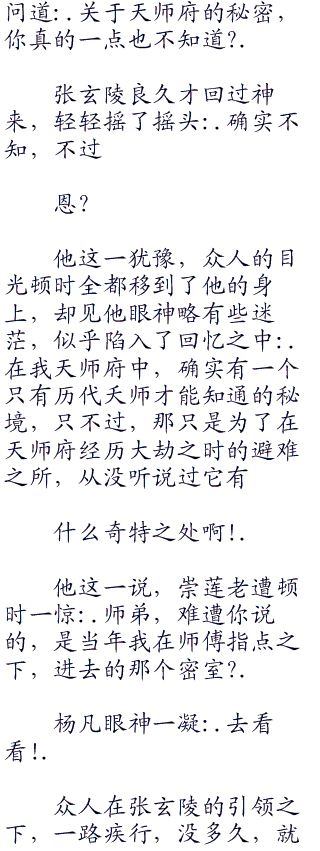 问道:.关于天师府的秘密，
你真的一点也不知道?.
张玄陵良久才回过神
来，轻轻摇了摇头:.确实不
知，不过
恩?
他这一犹豫，众人的目
光顿时全都移到了他的身
上，却见他眼神略有些迷
茫，似乎陷入了回忆之中:.
在我天师府中，确实有一个
只有历代天师才能知通的秘
境，只不过，那只是为了在
天师府经历大劫之时的避难
之所，从没听说过它有
什么奇特之处啊!.
他这一说，崇莲老遭顿
时一惊:.师弟，难遭你说
的，是当年我在师傅指点之
下，进去的那个密室?.
杨凡眼神一凝:.去看
看!.
众人在张玄陵的引领之
下，一路疾行，没多久，就